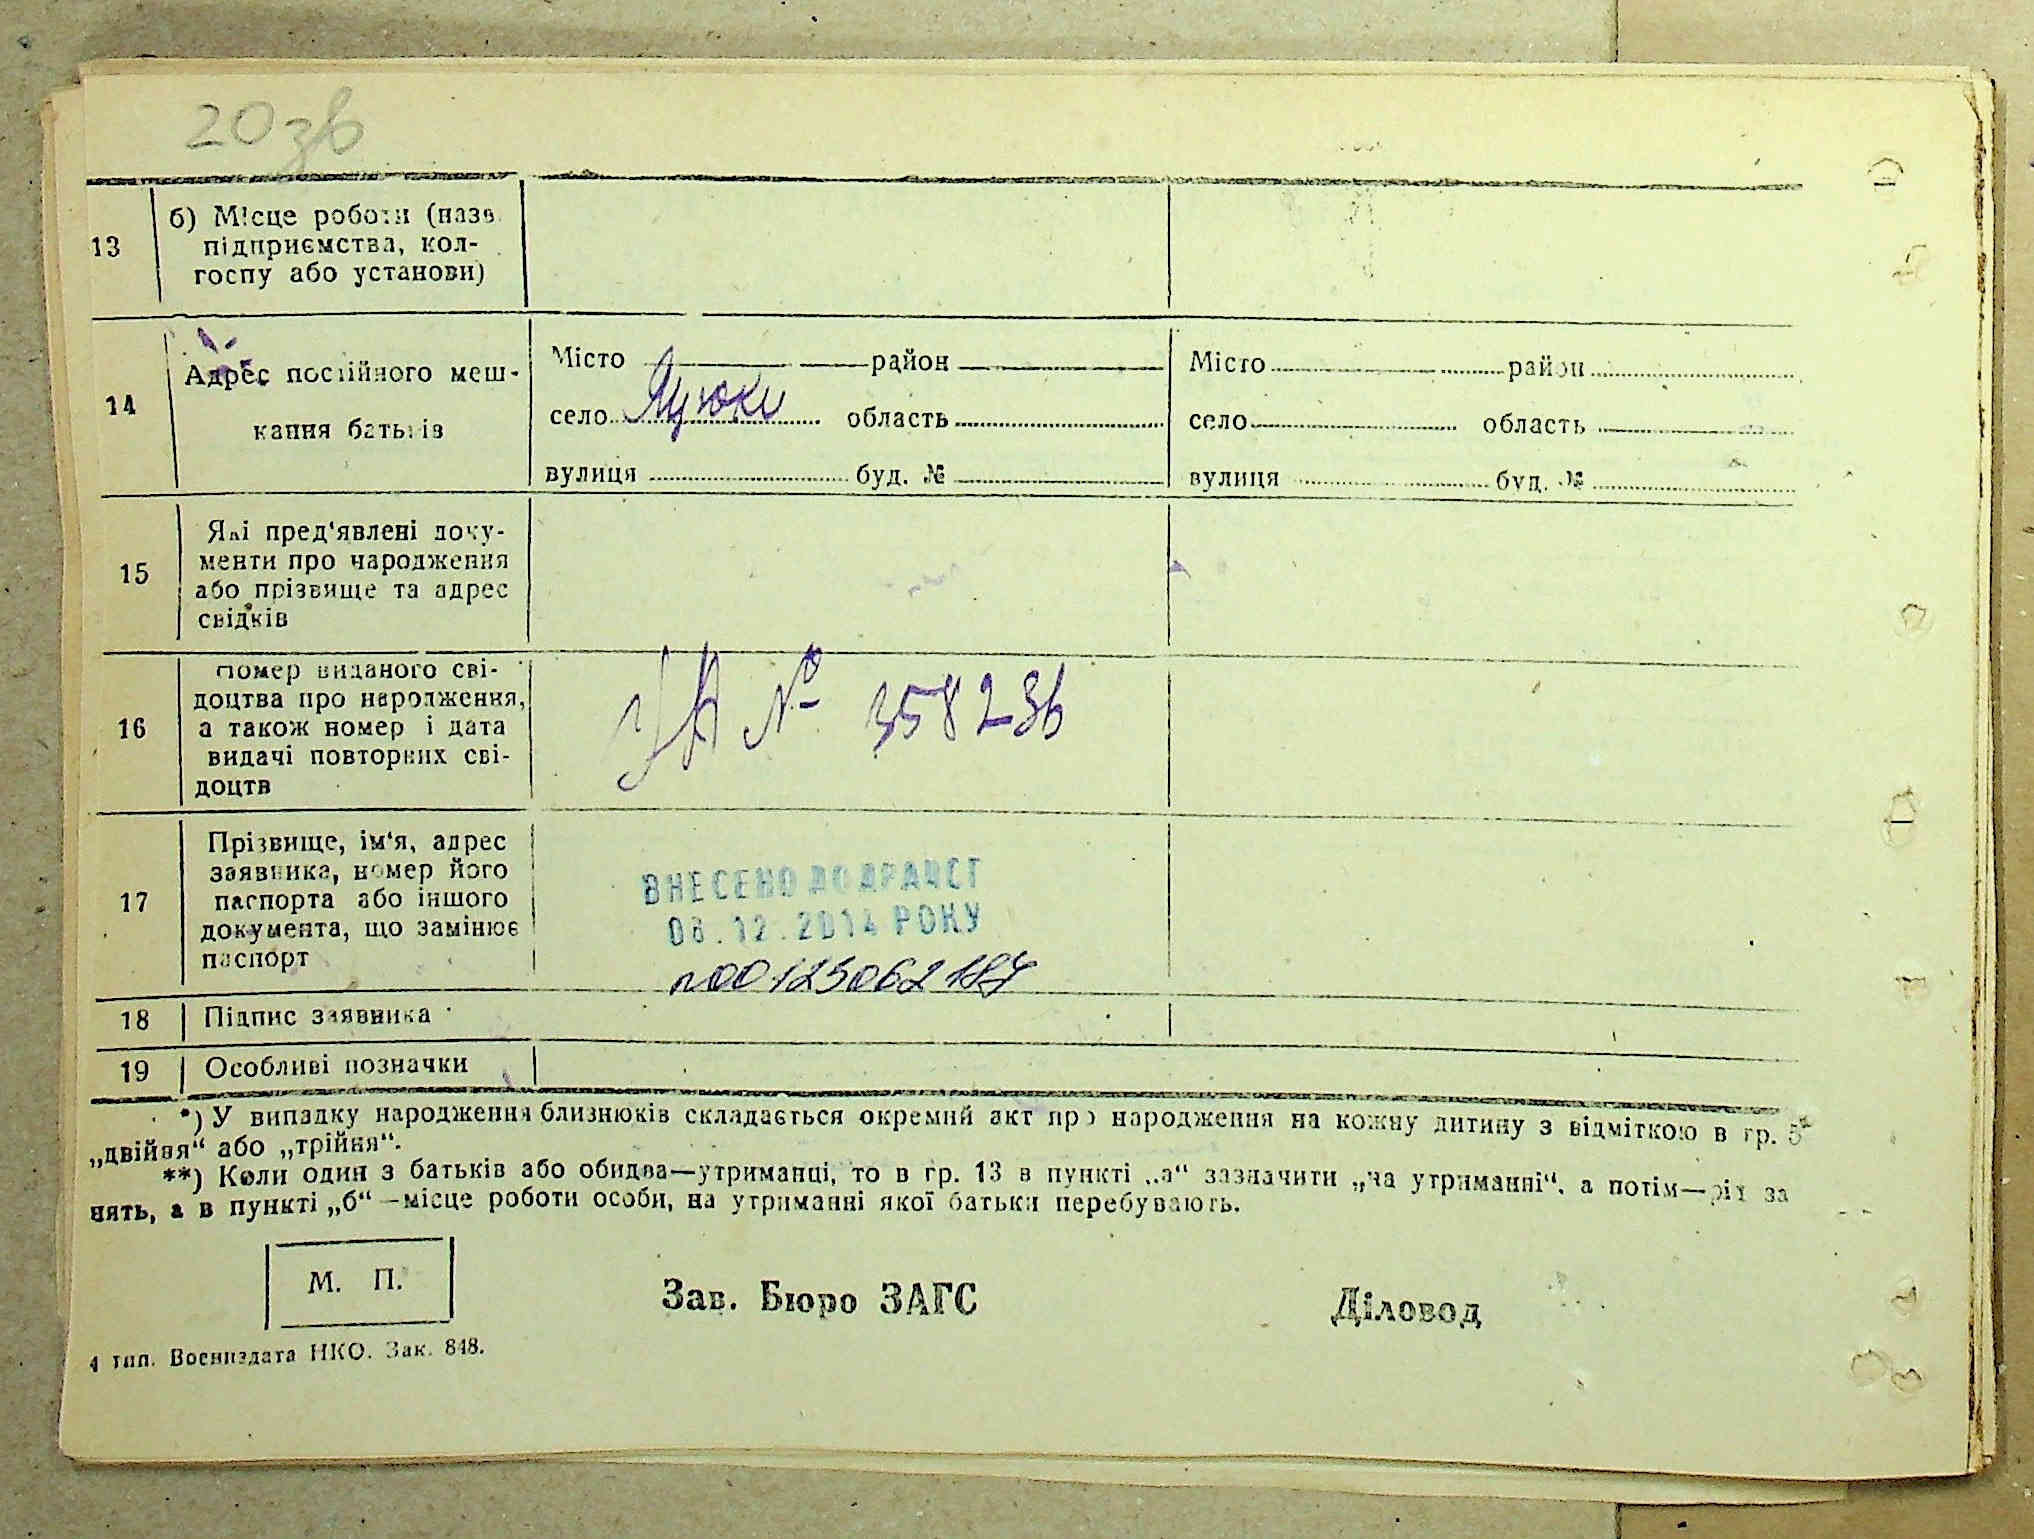 20 зв
13
б) Місце роботи (назв
підприємства, кол-
госпу або установи)
14
Адрес постійного меш-
кання батьків
Місто район
село Яцюки область
вулиця буд. №
Місто район
село область
вулиця буд. №
15
Які пред'явлені доку-
менти про народження
або прізвище та адрес
свідків
16
Номер виданого сві-
доцтва про народження,
а також номер і дата
видачі повторних сві-
доцтв
УА № 358236
17
Прізвище, ім'я, адрес
заявника, номер його
паспорта або іншого
документа, що замінює
паспорт
ВНЕСЕНО ДО ДРАЦСГ
06.12.2014 РОКУ
n00125062187
18 Підпис заявника
19 Особливі позначки
*) У випадку народження близнюків складається окремий акт про народження на кожну дитину з відміткою в гр. 5
„двійня“ або „трійня“.
**) Коли один з батьків або обидва—утриманці, то в гр. 13 в пункті „а“ зазначити „на утриманні“, а потім—рід за
нять, а в пункті „б“ —місце роботи особи, на утриманні якої батьки перебувають.
М. П.
Зав. Бюро ЗАГС
Діловод
4 тип. Воениздата НКО. Зак. 848.